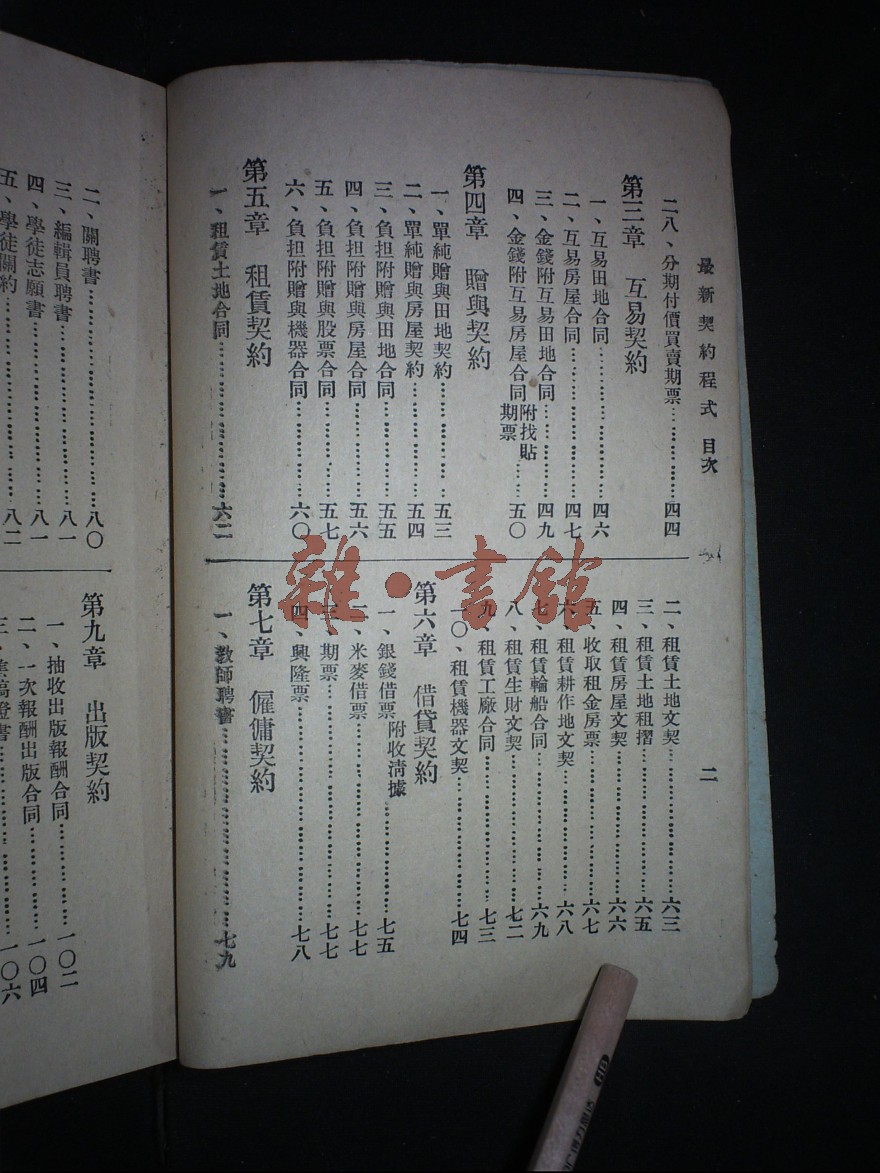 最新契約程式 目次
二
二八、分期付價買賣期票……四四
第三章 互易契約
一、互易田地合同……四六
二、互易房屋合同……四七
三、金錢附互易田地合同……四九
四、金錢附互易房屋合同附找貼期票……五〇
第四章 贈與契約
一、單純贈與田地契約……五三
二、單純贈與房屋契約……五四
三、負担附贈與田地合同……五五
四、負担附贈與房屋合同……五六
五、負担附贈與股票合同……五七
六、負担附贈與機器合同……六〇
第五章 租賃契約
一、租賃土地合同……六二
二、租賃土地文契……六三
三、租賃土地租摺……六五
四、租賃房屋文契……六六
五、收取租金房票……六七
六、租賃耕作地文契……六八
七、租賃輪船合同……六九
八、租賃生財文契……七二
九、租賃工廠合同……七三
一〇、租賃機器文契……七四
第六章 借貸契約
一、銀錢借票附收淸據……七五
二、米麥借票……七七
三、期票……七七
四、興隆票……七八
第七章 僱傭契約
一、敎師聘書……七九
二、關聘書……八〇
三、編輯員聘書……八一
四、學徒志願書……八一
五、學徒關約……八二
第九章 出版契約
一、抽收出版報酬合同……一〇二
二、一次報酬出版合同……一〇四
三、集稿證書……一〇六
雜·書館